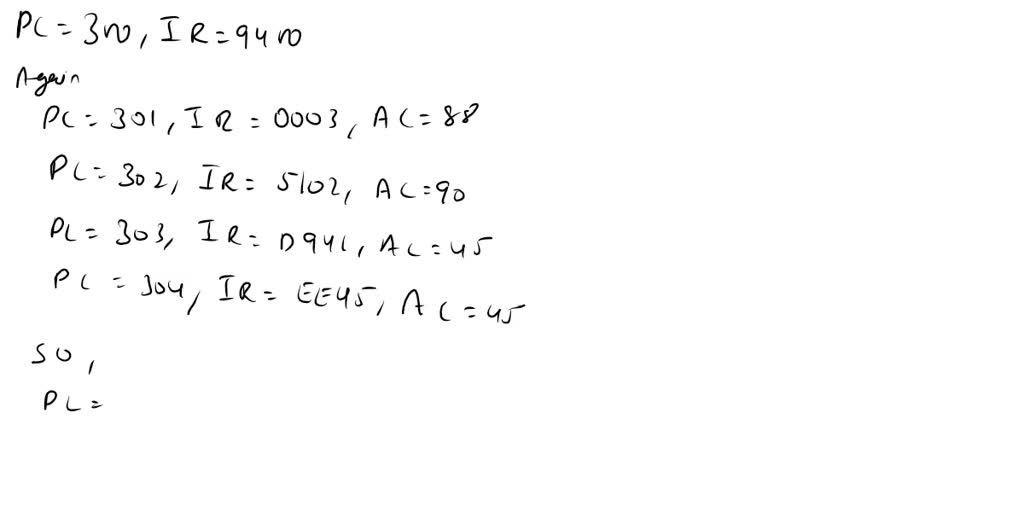 PC = 300, IR = 9400
Again
PC = 301, IR = 0003, AC = 88
PC = 302, IR = 5102, AC = 90
PC = 303, IR = D941, AC = 45
PC = 304, IR = EE45, AC = 45
SO,
PC =